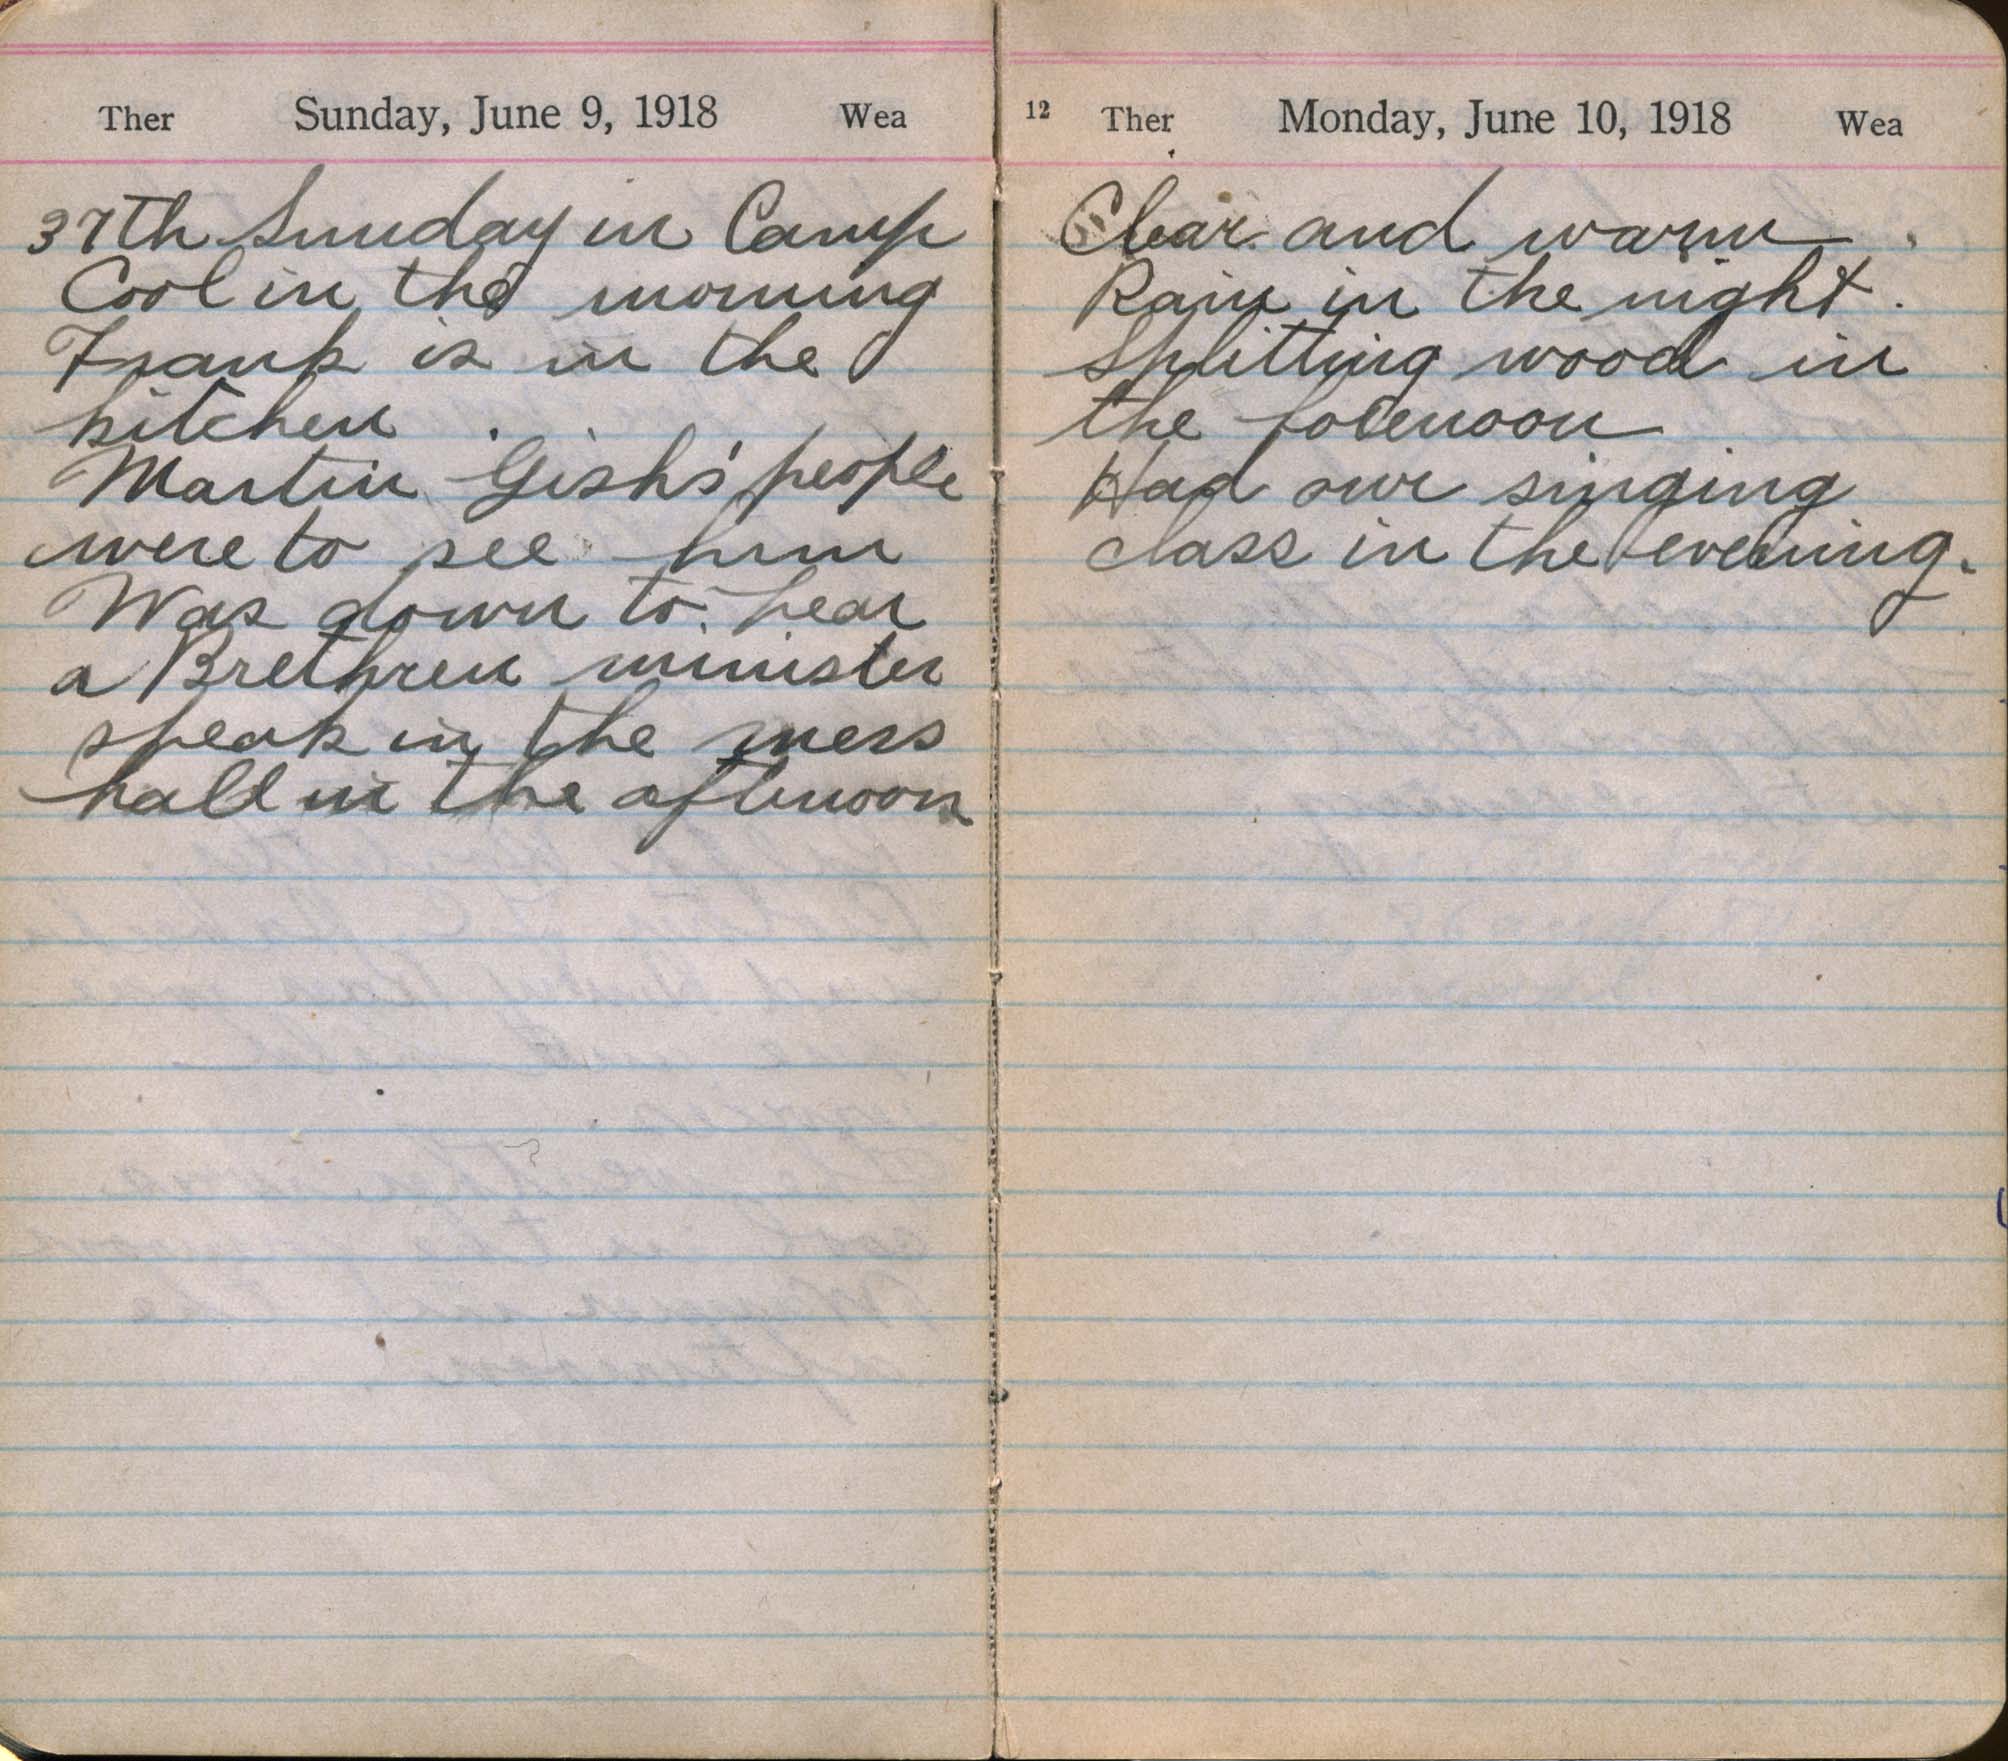 Ther Sunday, June 9, 1918 Wea
37th Sunday in Camp
Cool in the morning
Frank is in the
kitchen.
Martin Gish's people
were to see him
Was down to hear
a Brethren minister
speak in the mess
hall in the afternoon
12 Ther Monday, June 10, 1918 Wea
Clear and warm.
Rain in the night.
Splitting wood in
the forenoon
Had our singing
class in the evening.